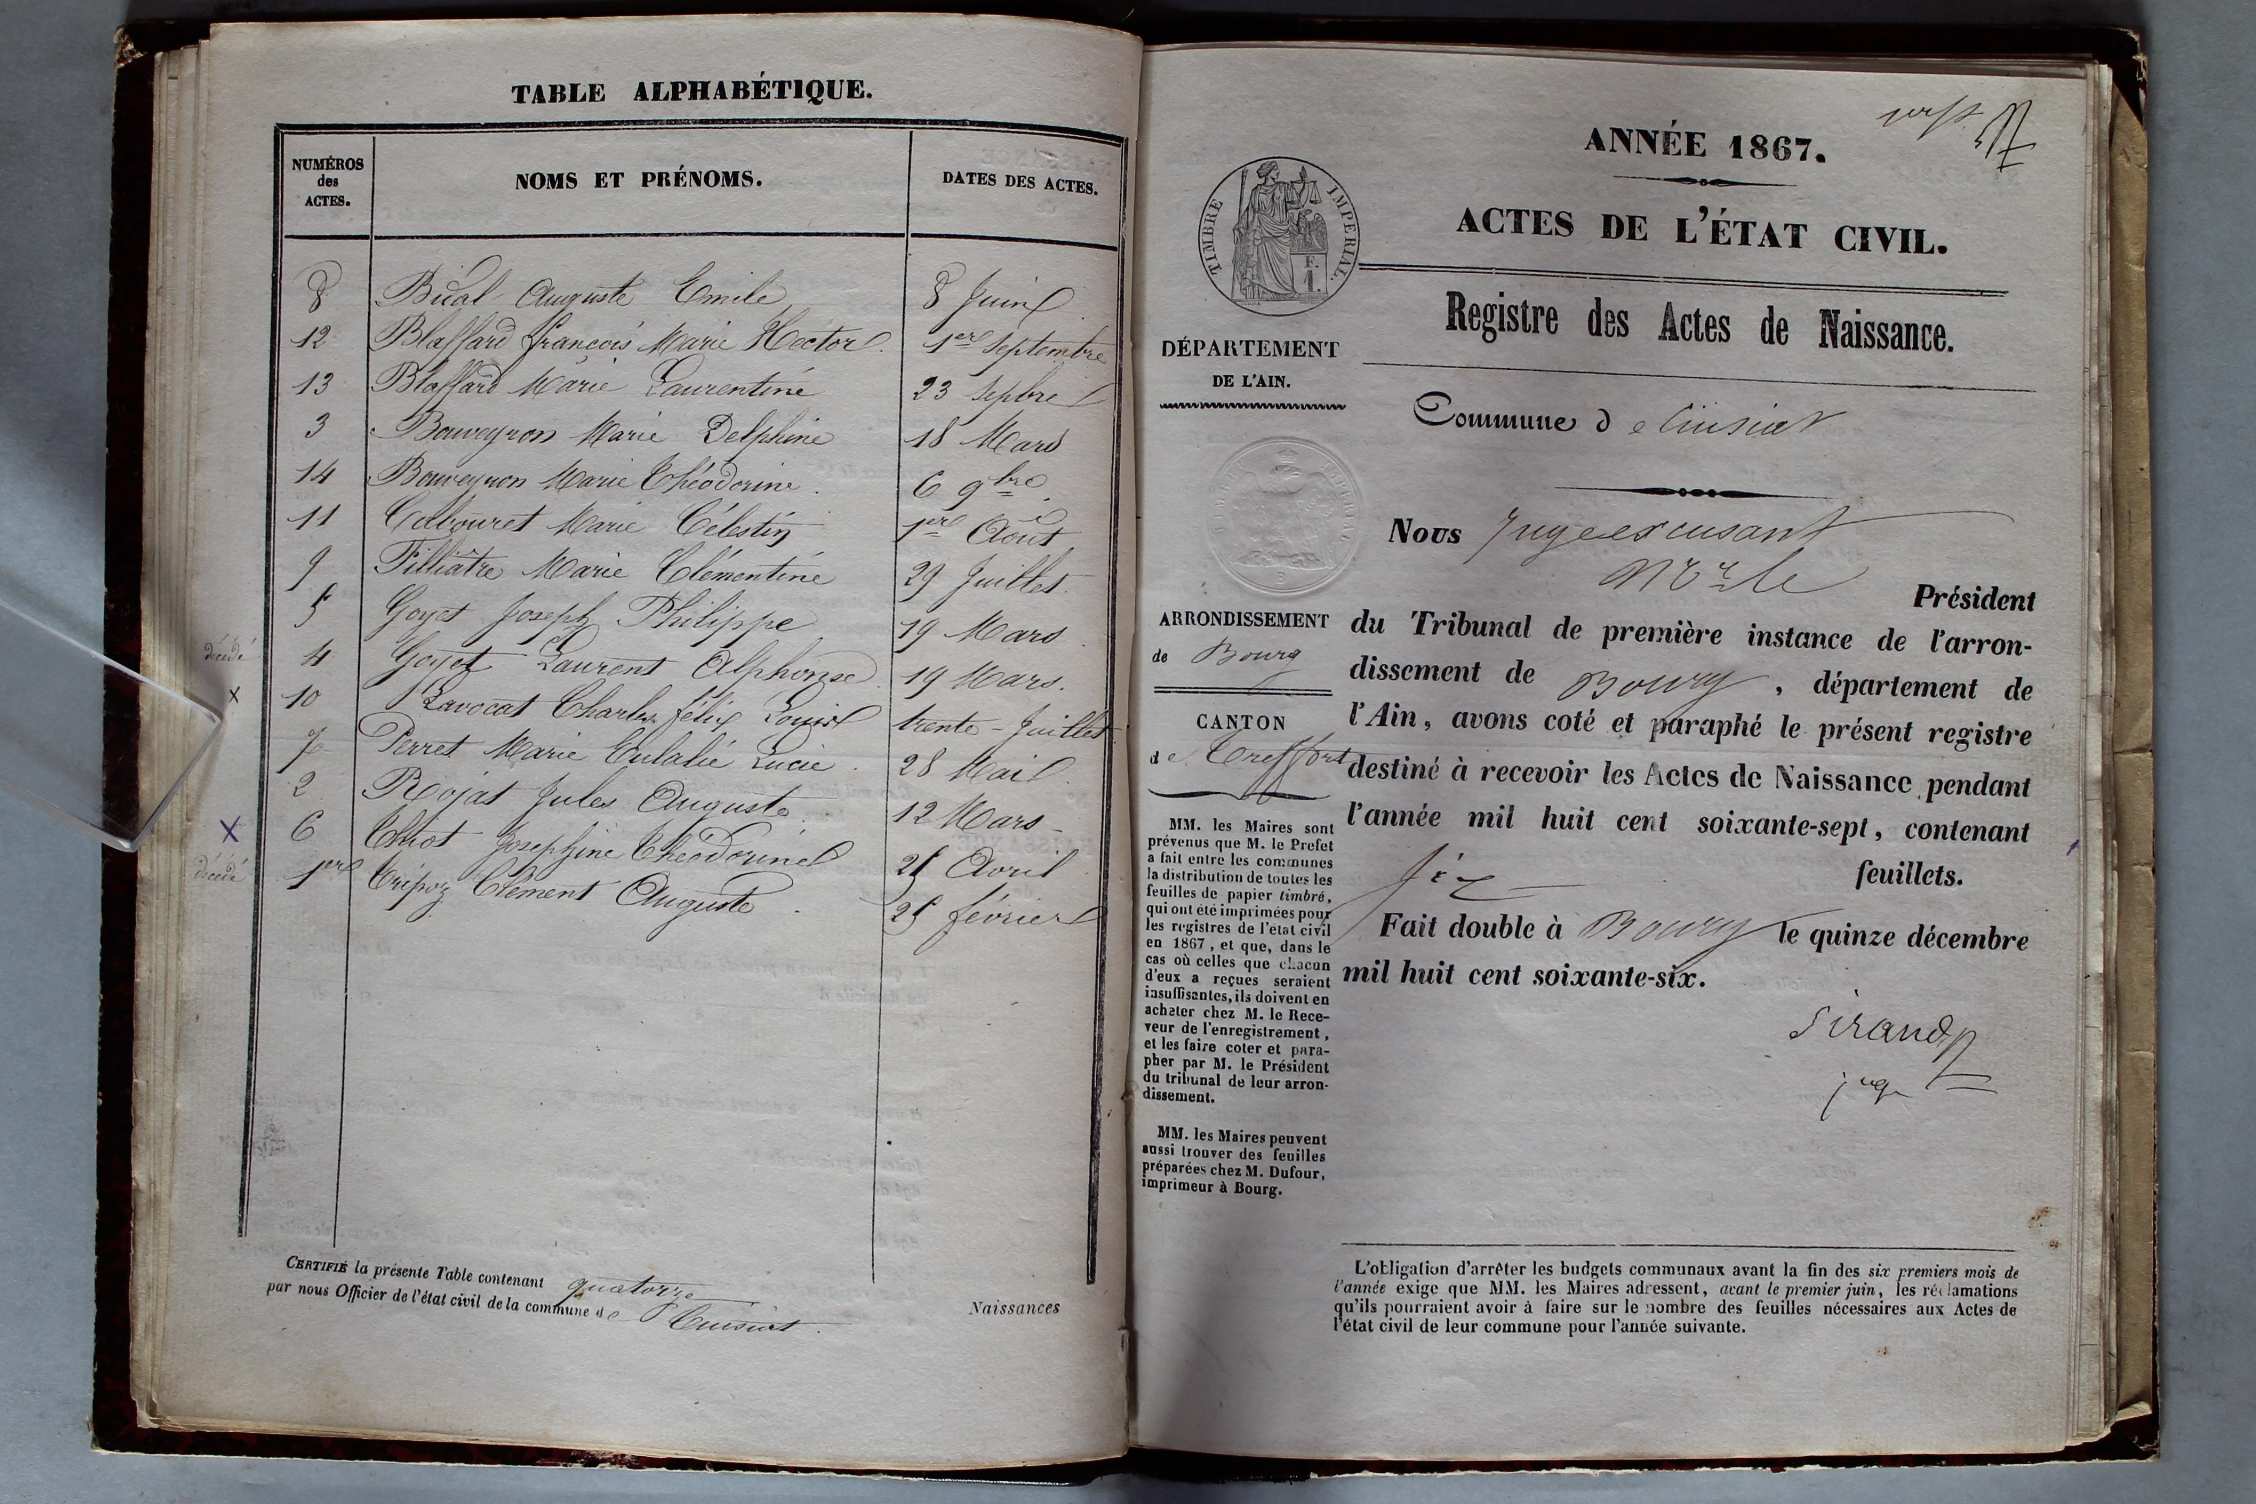 TABLE ALPHABÉTIQUE.
NUMÉROS des ACTES.
NOMS ET PRÉNOMS.
DATES DES ACTES.
8 Auguste Emile 8 Juin
12 Blaffard françois Marie Hector. 1er Septembre
13 Blaffard Marie Laurentine 23 Sepbre
3 Bouveyron Marie Delphine 18 Mars
14 Bouveyron Marie Théodorine. 6 9bre
11 Cabouret Marie Célestin 1er Août
9 Filliâtre Marie Clémentine 29 Juillet.
5 Goyet Joseph Philippe 19 Mars
décédé 4 Goyet Laurent Alphonse 19 Mars.
x 10 Lavocat Charles félix Louis trente - Juillet
7 Perret Marie Eulalie Lucie. 28 Mai
2 Rojat Jules Auguste. 12 Mars -
X 6 Josephine Théodorine 25 Avril
décédé 1er Tripoz Clément Auguste. 25 février
CERTIFIÉ la présente Table contenant quatorze
par nous Officier de l'état civil de la commune de Cuisiat.
Naissances
ANNÉE 1867.
ACTES DE L'ÉTAT CIVIL.
TIMBRE IMPERIAL.
F. 1.
Registre des Actes de Naissance.
DÉPARTEMENT
DE L'AIN.
Commune de Cuisiat
Nous Juge excusant
Mr le Président
ARRONDISSEMENT
de Bourg
CANTON
de Treffort
du Tribunal de première instance de l'arron-
dissement de Bourg, département de
l'Ain, avons coté et paraphé le présent registre
destiné à recevoir les Actes de Naissance pendant
l'année mil huit cent soixante-sept, contenant
six feuillets.
Fait double à Bourg le quinze décembre
mil huit cent soixante-six.
Sirand
juge
MM. les Maires sont
prévenus que M. le Prefet
a fait entre les communes
la distribution de toutes les
feuilles de papier timbré,
qui ont été imprimées pour
les registres de l'etat civil
en 1867, et que, dans le
cas où celles que chacun
d'eux a reçues seraient
insuffisantes, ils doivent en
acheter chez M. le Rece-
veur de l'enregistrement,
et les faire coter et para-
pher par M. le Président
du tribunal de leur arron-
dissement.
MM. les Maires peuvent
aussi trouver des feuilles
préparées chez M. Dufour,
imprimeur à Bourg.
L'obligation d'arrêter les budgets communaux avant la fin des six premiers mois de
l'année exige que MM. les Maires adressent, avant le premier juin, les réclamations
qu'ils pourraient avoir à faire sur le nombre des feuilles nécessaires aux Actes de
l'état civil de leur commune pour l'année suivante.